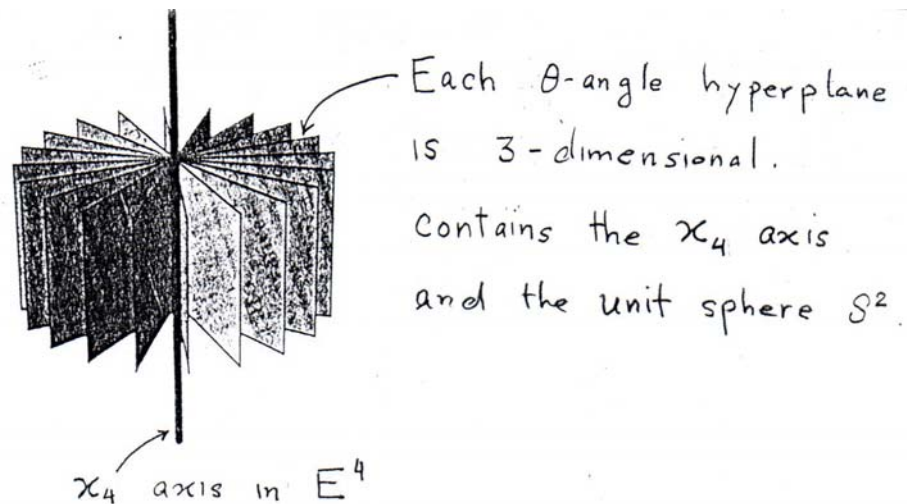 Each θ-angle hyperplane
is 3-dimensional.
contains the x₄ axis
and the unit sphere S².
x₄ axis in E⁴